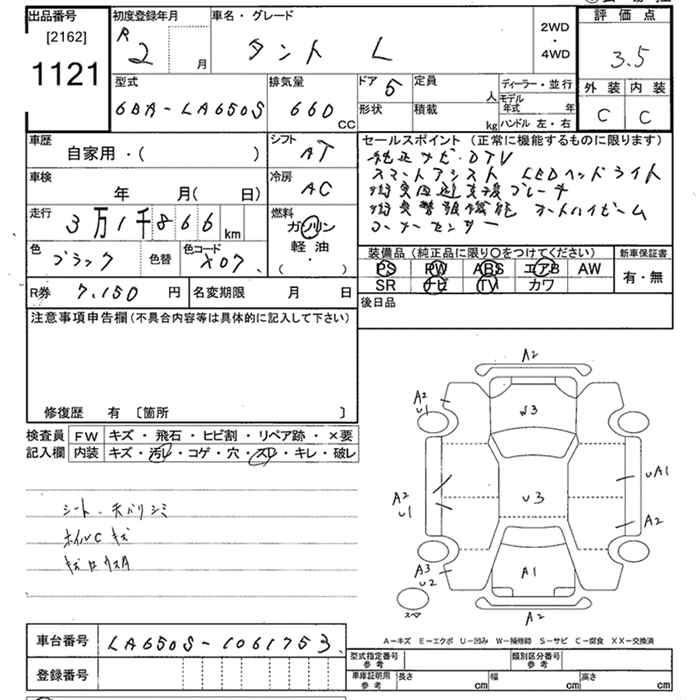 出品番号
[2162]
1121
初度登録年月
R 2 月
車名・グレード
タント L
2WD
・
4WD
評価点
3.5
外装 内装
C C
型式
6BA-LA650S
排気量
660 CC
ドア 5
定員 人
形状
積載 kg
ディーラー・並行
モデル年式 年
ハンドル 左・右
車歴
自家用・( )
シフト AT
車検
年 月( 日)
冷房 AC
走行
3万1千866 km
燃料
ガソリン
軽油
・
( )
色 ブラック
色替
色コード X07
セールスポイント (正常に機能するものに限ります)
純正ナビ・DTV
スマートアシスト LEDヘッドライト
衝突回避支援ブレーキ
衝突警報機能 オートハイビーム
コーナーセンサー
装備品 (純正品に限り○をつけてください)
PS PW ABS エアB AW
SR ナビ TV カワ
新車保証書
有・無
R券 7,150 円
名変期限 月 日
後日品
注意事項申告欄 (不具合内容等は具体的に記入して下さい)
修復歴 有 〔箇所 〕
検査員記入欄
FW キズ・飛石・ヒビ割・リペア跡・×要
内装 キズ・汚レ・コゲ・穴・スレ・キレ・破レ
シート・天バリシミ
ホイルCキズ
A2
A2
U1
U3
A2
U1
U3
UA1
A2
A3
U2
A1
A2
スペ
A－キズ E－エクボ U－凹み W－補修跡 S－サビ C－腐食 XX－交換済
車台番号 LA650S-1061753
登録番号
型式指定番号 参考
類別区分番号 参考
車庫証明用 参考
長さ cm 幅 cm 高さ cm